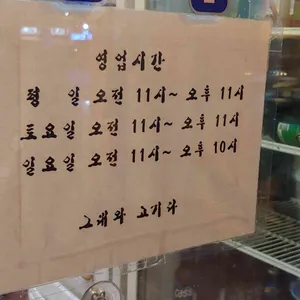 영업시간
평 일 오전 11시~ 오후 11시
토요일 오전 11시~ 오후 11시
일요일 오전 11시~ 오후 10시
그대와 고기사